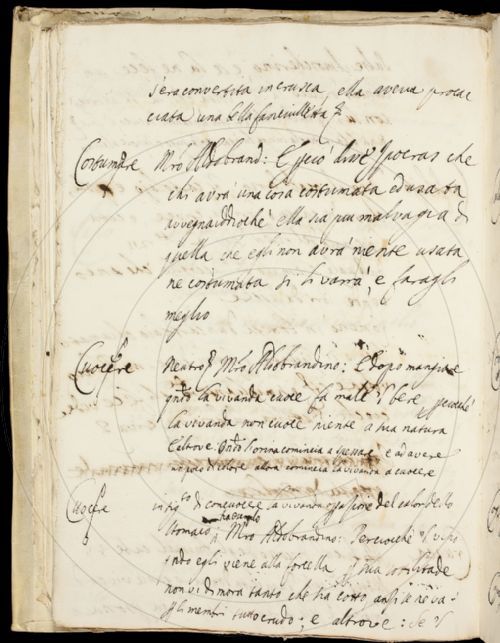 s'era convertita in crusca, ella aveva procac
ciata una bella fanciulletta &
Costumare Mro Aldobrand: E perciò disse Ypocras che
chi avrà una cosa costumata ed usata
avvegnaddiochè ella sia più malvagia di
quella che egli non avrà niente usata
ne costumata si li varrà, e faragli
meglio
Cuocere Mro Aldobrandino: E dopo mangiare
qndo la vivanda cuoce fa male 'l bere perochè
la vivanda non cuoce niente a sua natura
E altrove. Qndo l'orina comincia a spessare e ad avere
un poco di colore allora comincia la vivanda a cuocere
Cuocere in sigto di concuocere la vivanda per il calor dello
stomaco Mro Aldobrandino: Percioché 'l vino
qndo egli viene alla forcella p sua
non vi dimora tanto che sia cotto, anzi se ne va
p li membri tutto crudo; e altrove: Se 'l